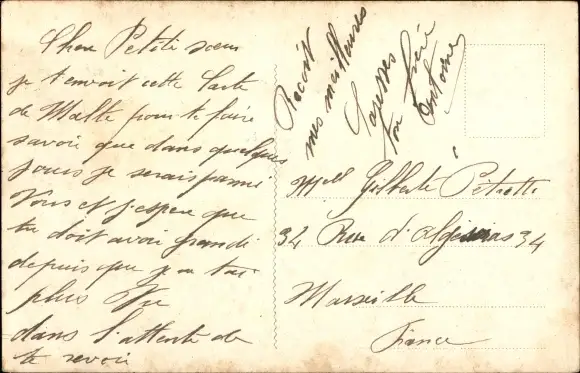 Cher Petite sœur
je t'envoit cette Carte
de Malte pour te faire
savoir que dans quelques
jours je serais parmi
Vous et j'espere que
tu doit avoir grandi
depuis que je ne tai
plus Vue
dans l'attente de
te revoir
Recoit
mes meilleures
Caresses
ton frère
Antoine
Mell Gilberte Petrotti
34 Rue d'Algesiras 34
Marseille
France